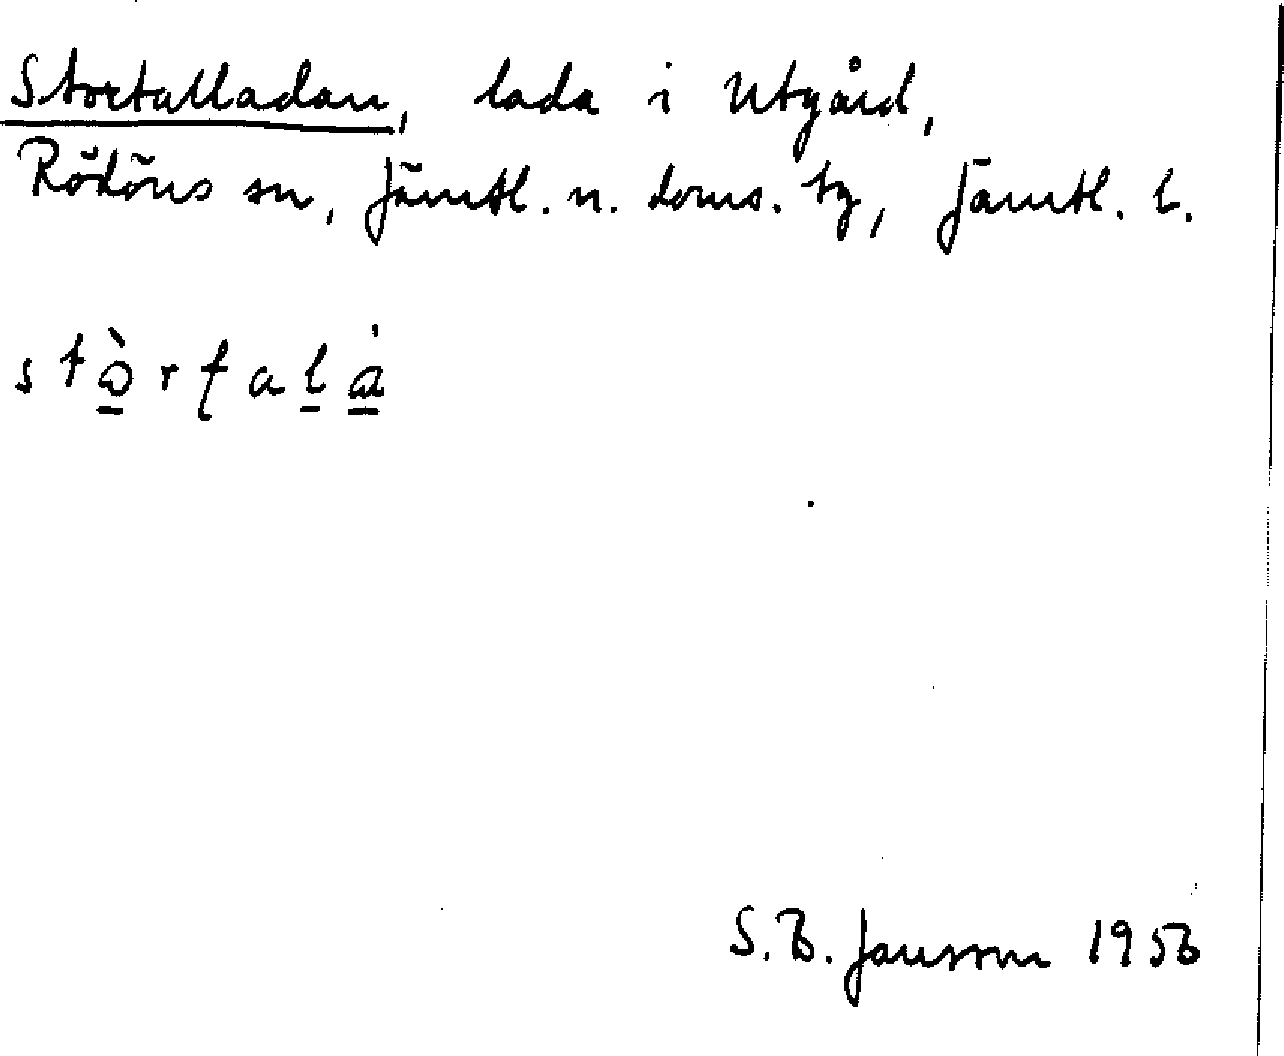 Stortalladan, lada i Utgård,
Rödöns sn, Jämtl. n. doms. tg, Jämtl. l.
stòrtalà
S. B. Jansson 1956